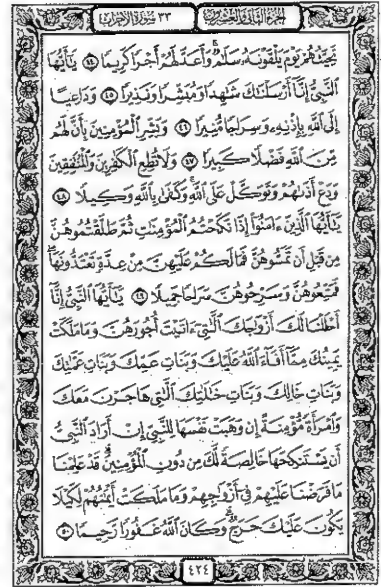 الجزء الثاني والعشرون ٣٣ سورة الأحزاب
تَحِيَّتُهُمْ يَوْمَ يَلْقَوْنَهُ سَلَٰمٌ وَأَعَدَّ لَهُمْ أَجْرًا كَرِيمًا ٤٤ يَٰٓأَيُّهَا
ٱلنَّبِىُّ إِنَّآ أَرْسَلْنَٰكَ شَٰهِدًا وَمُبَشِّرًا وَنَذِيرًا ٤٥ وَدَاعِيًا
إِلَى ٱللَّهِ بِإِذْنِهِۦ وَسِرَاجًا مُّنِيرًا ٤٦ وَبَشِّرِ ٱلْمُؤْمِنِينَ بِأَنَّ لَهُم
مِّنَ ٱللَّهِ فَضْلًا كَبِيرًا ٤٧ وَلَا تُطِعِ ٱلْكَٰفِرِينَ وَٱلْمُنَٰفِقِينَ
وَدَعْ أَذَىٰهُمْ وَتَوَكَّلْ عَلَى ٱللَّهِ وَكَفَىٰ بِٱللَّهِ وَكِيلًا ٤٨
يَٰٓأَيُّهَا ٱلَّذِينَ ءَامَنُوٓا۟ إِذَا نَكَحْتُمُ ٱلْمُؤْمِنَٰتِ ثُمَّ طَلَّقْتُمُوهُنَّ
مِن قَبْلِ أَن تَمَسُّوهُنَّ فَمَا لَكُمْ عَلَيْهِنَّ مِنْ عِدَّةٍ تَعْتَدُّونَهَا
فَمَتِّعُوهُنَّ وَسَرِّحُوهُنَّ سَرَاحًا جَمِيلًا ٤٩ يَٰٓأَيُّهَا ٱلنَّبِىُّ إِنَّآ
أَحْلَلْنَا لَكَ أَزْوَٰجَكَ ٱلَّٰتِىٓ ءَاتَيْتَ أُجُورَهُنَّ وَمَا مَلَكَتْ
يَمِينُكَ مِمَّآ أَفَآءَ ٱللَّهُ عَلَيْكَ وَبَنَاتِ عَمِّكَ وَبَنَاتِ عَمَّٰتِكَ
وَبَنَاتِ خَالِكَ وَبَنَاتِ خَٰلَٰتِكَ ٱلَّٰتِى هَاجَرْنَ مَعَكَ
وَٱمْرَأَةً مُّؤْمِنَةً إِن وَهَبَتْ نَفْسَهَا لِلنَّبِىِّ إِنْ أَرَادَ ٱلنَّبِىُّ
أَن يَسْتَنكِحَهَا خَالِصَةً لَّكَ مِن دُونِ ٱلْمُؤْمِنِينَ قَدْ عَلِمْنَا
مَا فَرَضْنَا عَلَيْهِمْ فِىٓ أَزْوَٰجِهِمْ وَمَا مَلَكَتْ أَيْمَٰنُهُمْ لِكَيْلَا
يَكُونَ عَلَيْكَ حَرَجٌ وَكَانَ ٱللَّهُ غَفُورًا رَّحِيمًا ٥٠
٤٢٤